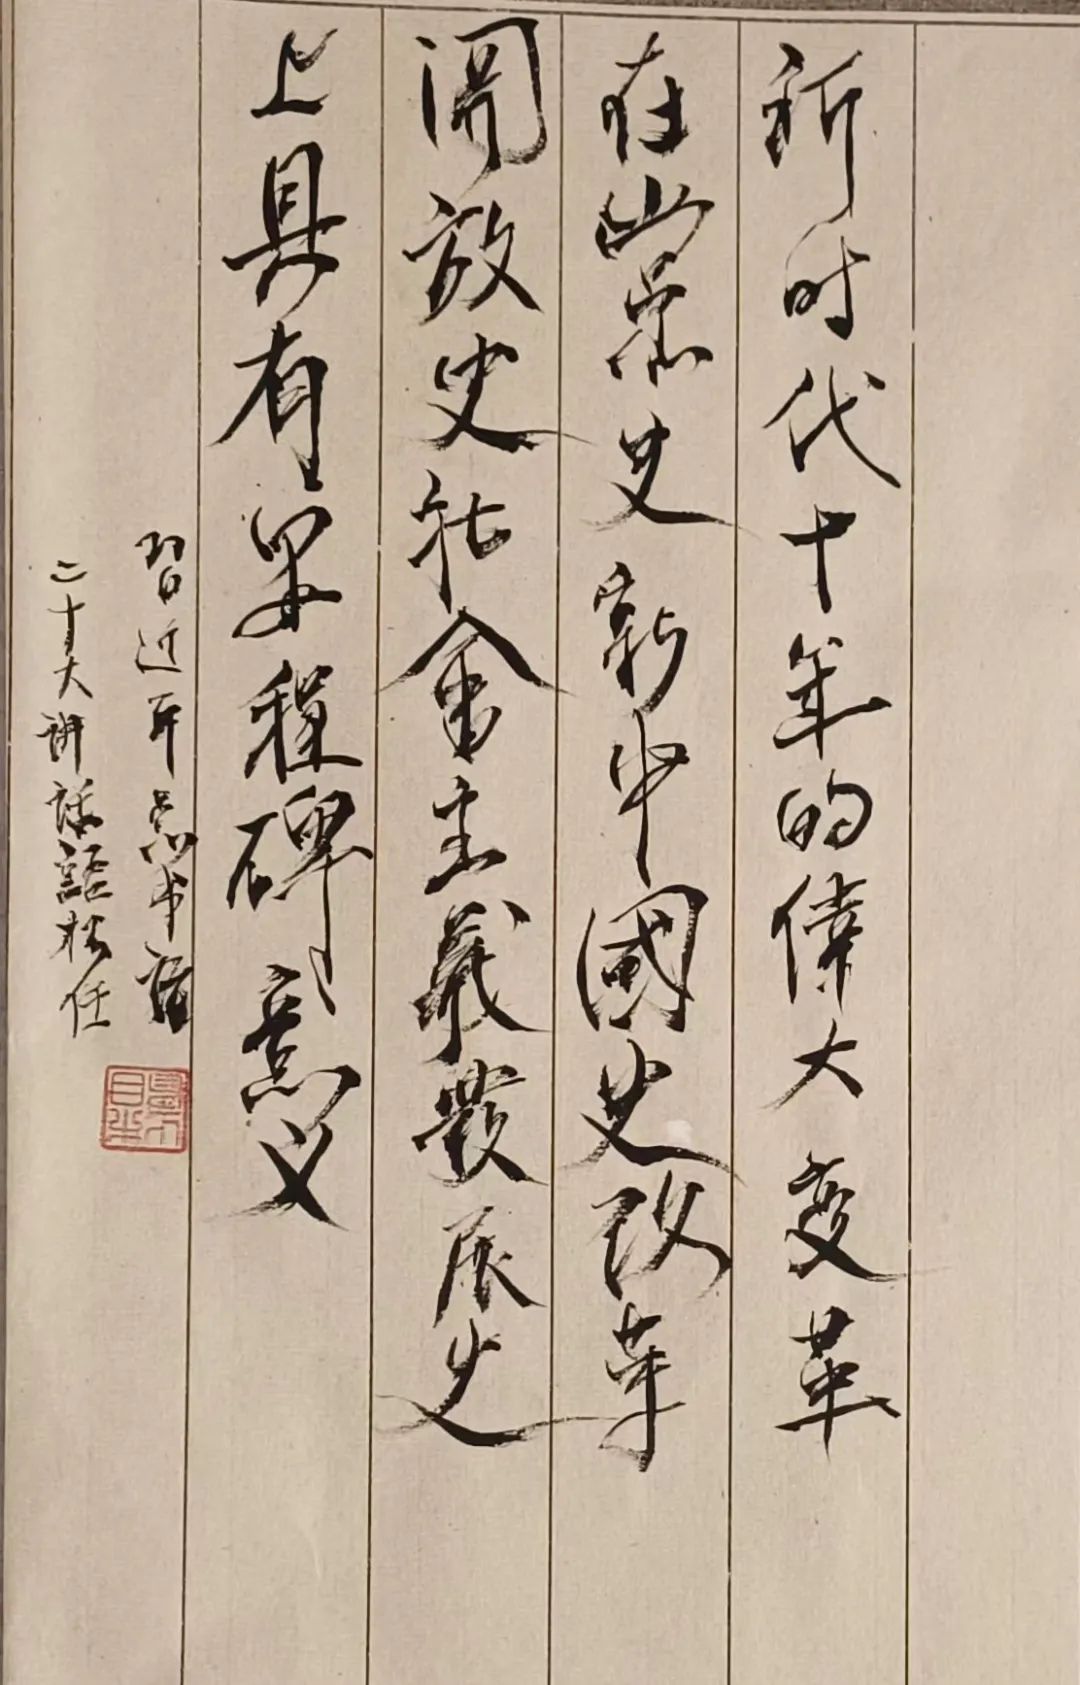 新时代十年的偉大变革
在党史新中國史改革
開放史社會主義發展史
上具有里程碑意义
習近平总书记
二十大讲话